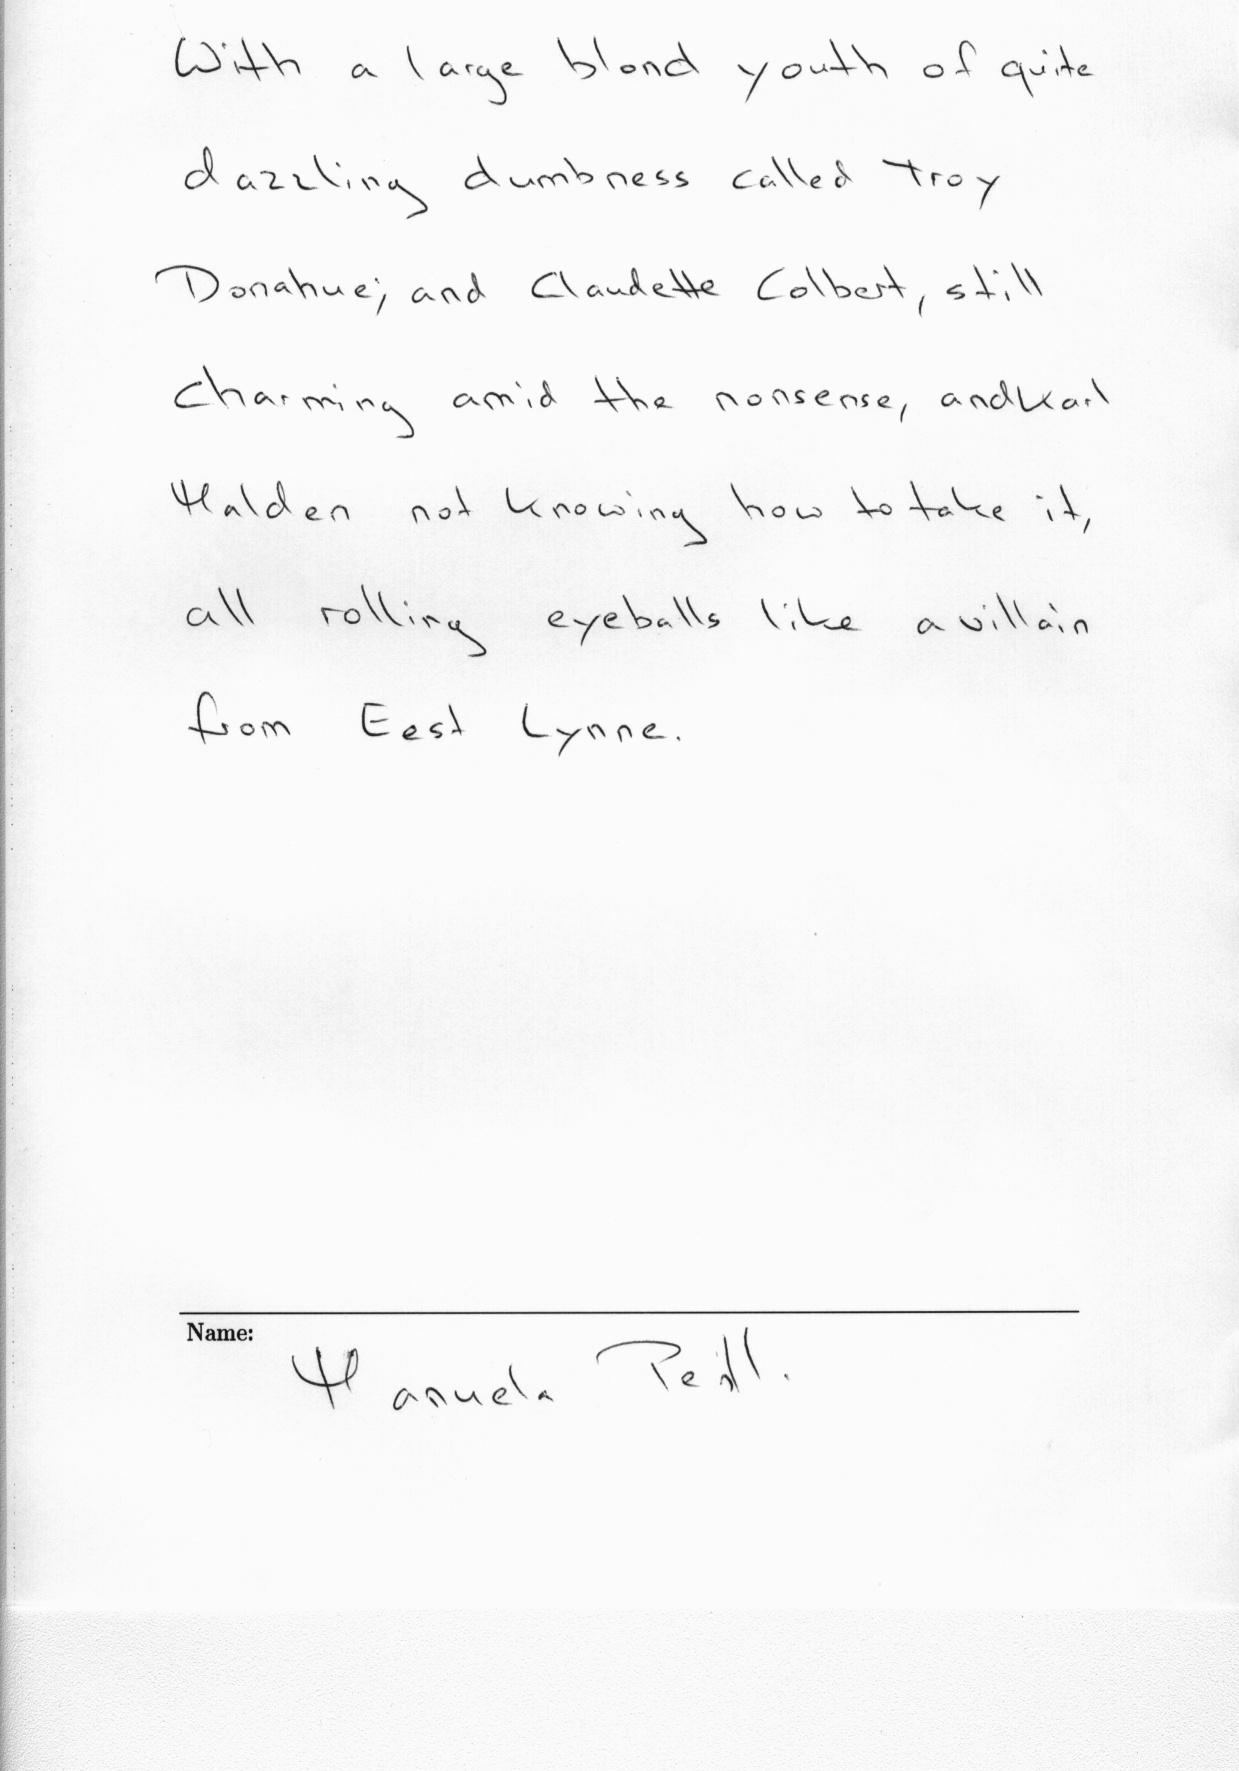 With a large blond youth of quite
dazzling dumbness called Troy
Donahue; and Claudette Colbert, still
charming amid the nonsense, and Karl
Malden not knowing how to take it,
all rolling eyeballs like a villain
from East Lynne.
Name:
Manuela